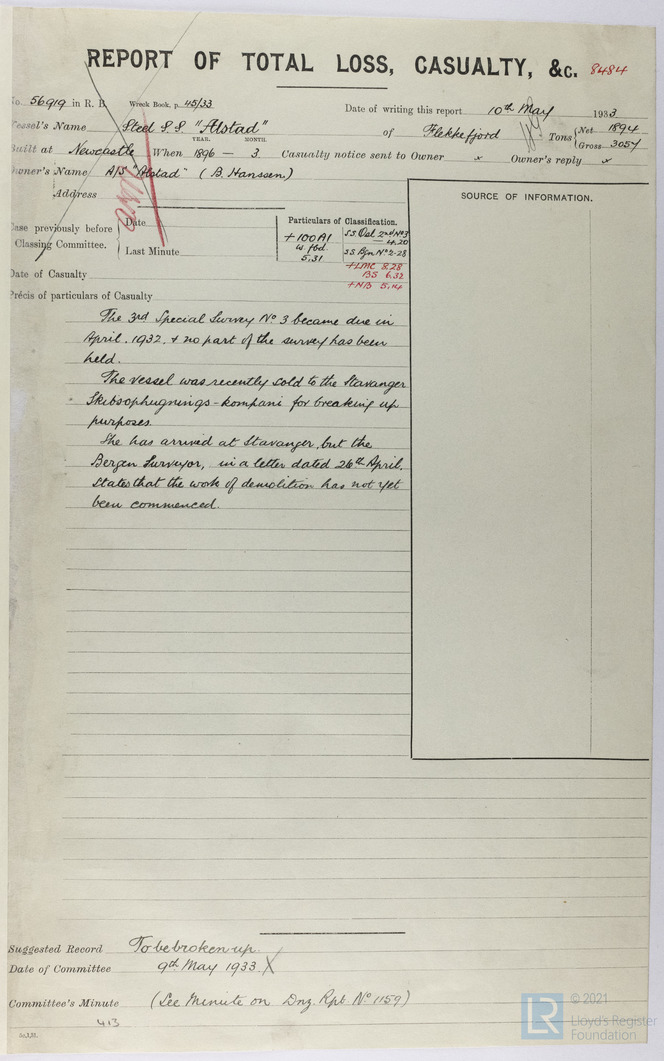 REPORT OF TOTAL LOSS, CASUALTY, &c. 8484
No. 56919 in R. B. Wreck Book, p. 45/33
Date of writing this report 10th May 1933
Vessel's Name Steel S.S. "Alstad" of Flekkefjord Tons { Net 1894
Gross 3057
YEAR. MONTH.
Built at Newcastle When 1896 — 3. Casualty notice sent to Owner x Owner's reply x
Owner's Name A/S "Alstad" (B. Hanssen)
Address
SOURCE OF INFORMATION.
Case previously before Classing Committee. { Date
Last Minute
Particulars of Classification.
+100A1
w. fbd.
5.31
S.S. Osl. 2nd No 3
— 4.20
S.S. Bgn No 2-28
+LMC 8.28
BS 6.32
+NB 5.14
Date of Casualty
Précis of particulars of Casualty
The 3rd Special Survey No. 3 became due in
April, 1932, & no part of the survey has been
held.
The vessel was recently sold to the Stavanger
Skibsophugnings-kompani for breaking up
purposes.
She has arrived at Stavanger, but the
Bergen Surveyor, in a letter dated 26th April,
states that the work of demolition has not yet
been commenced.
Suggested Record To be broken up.
Date of Committee 9th May 1933. X
Committee's Minute (See Minute on Dnz. Rpt No. 1159)
413
© 2021
LR Lloyd's Register
Foundation